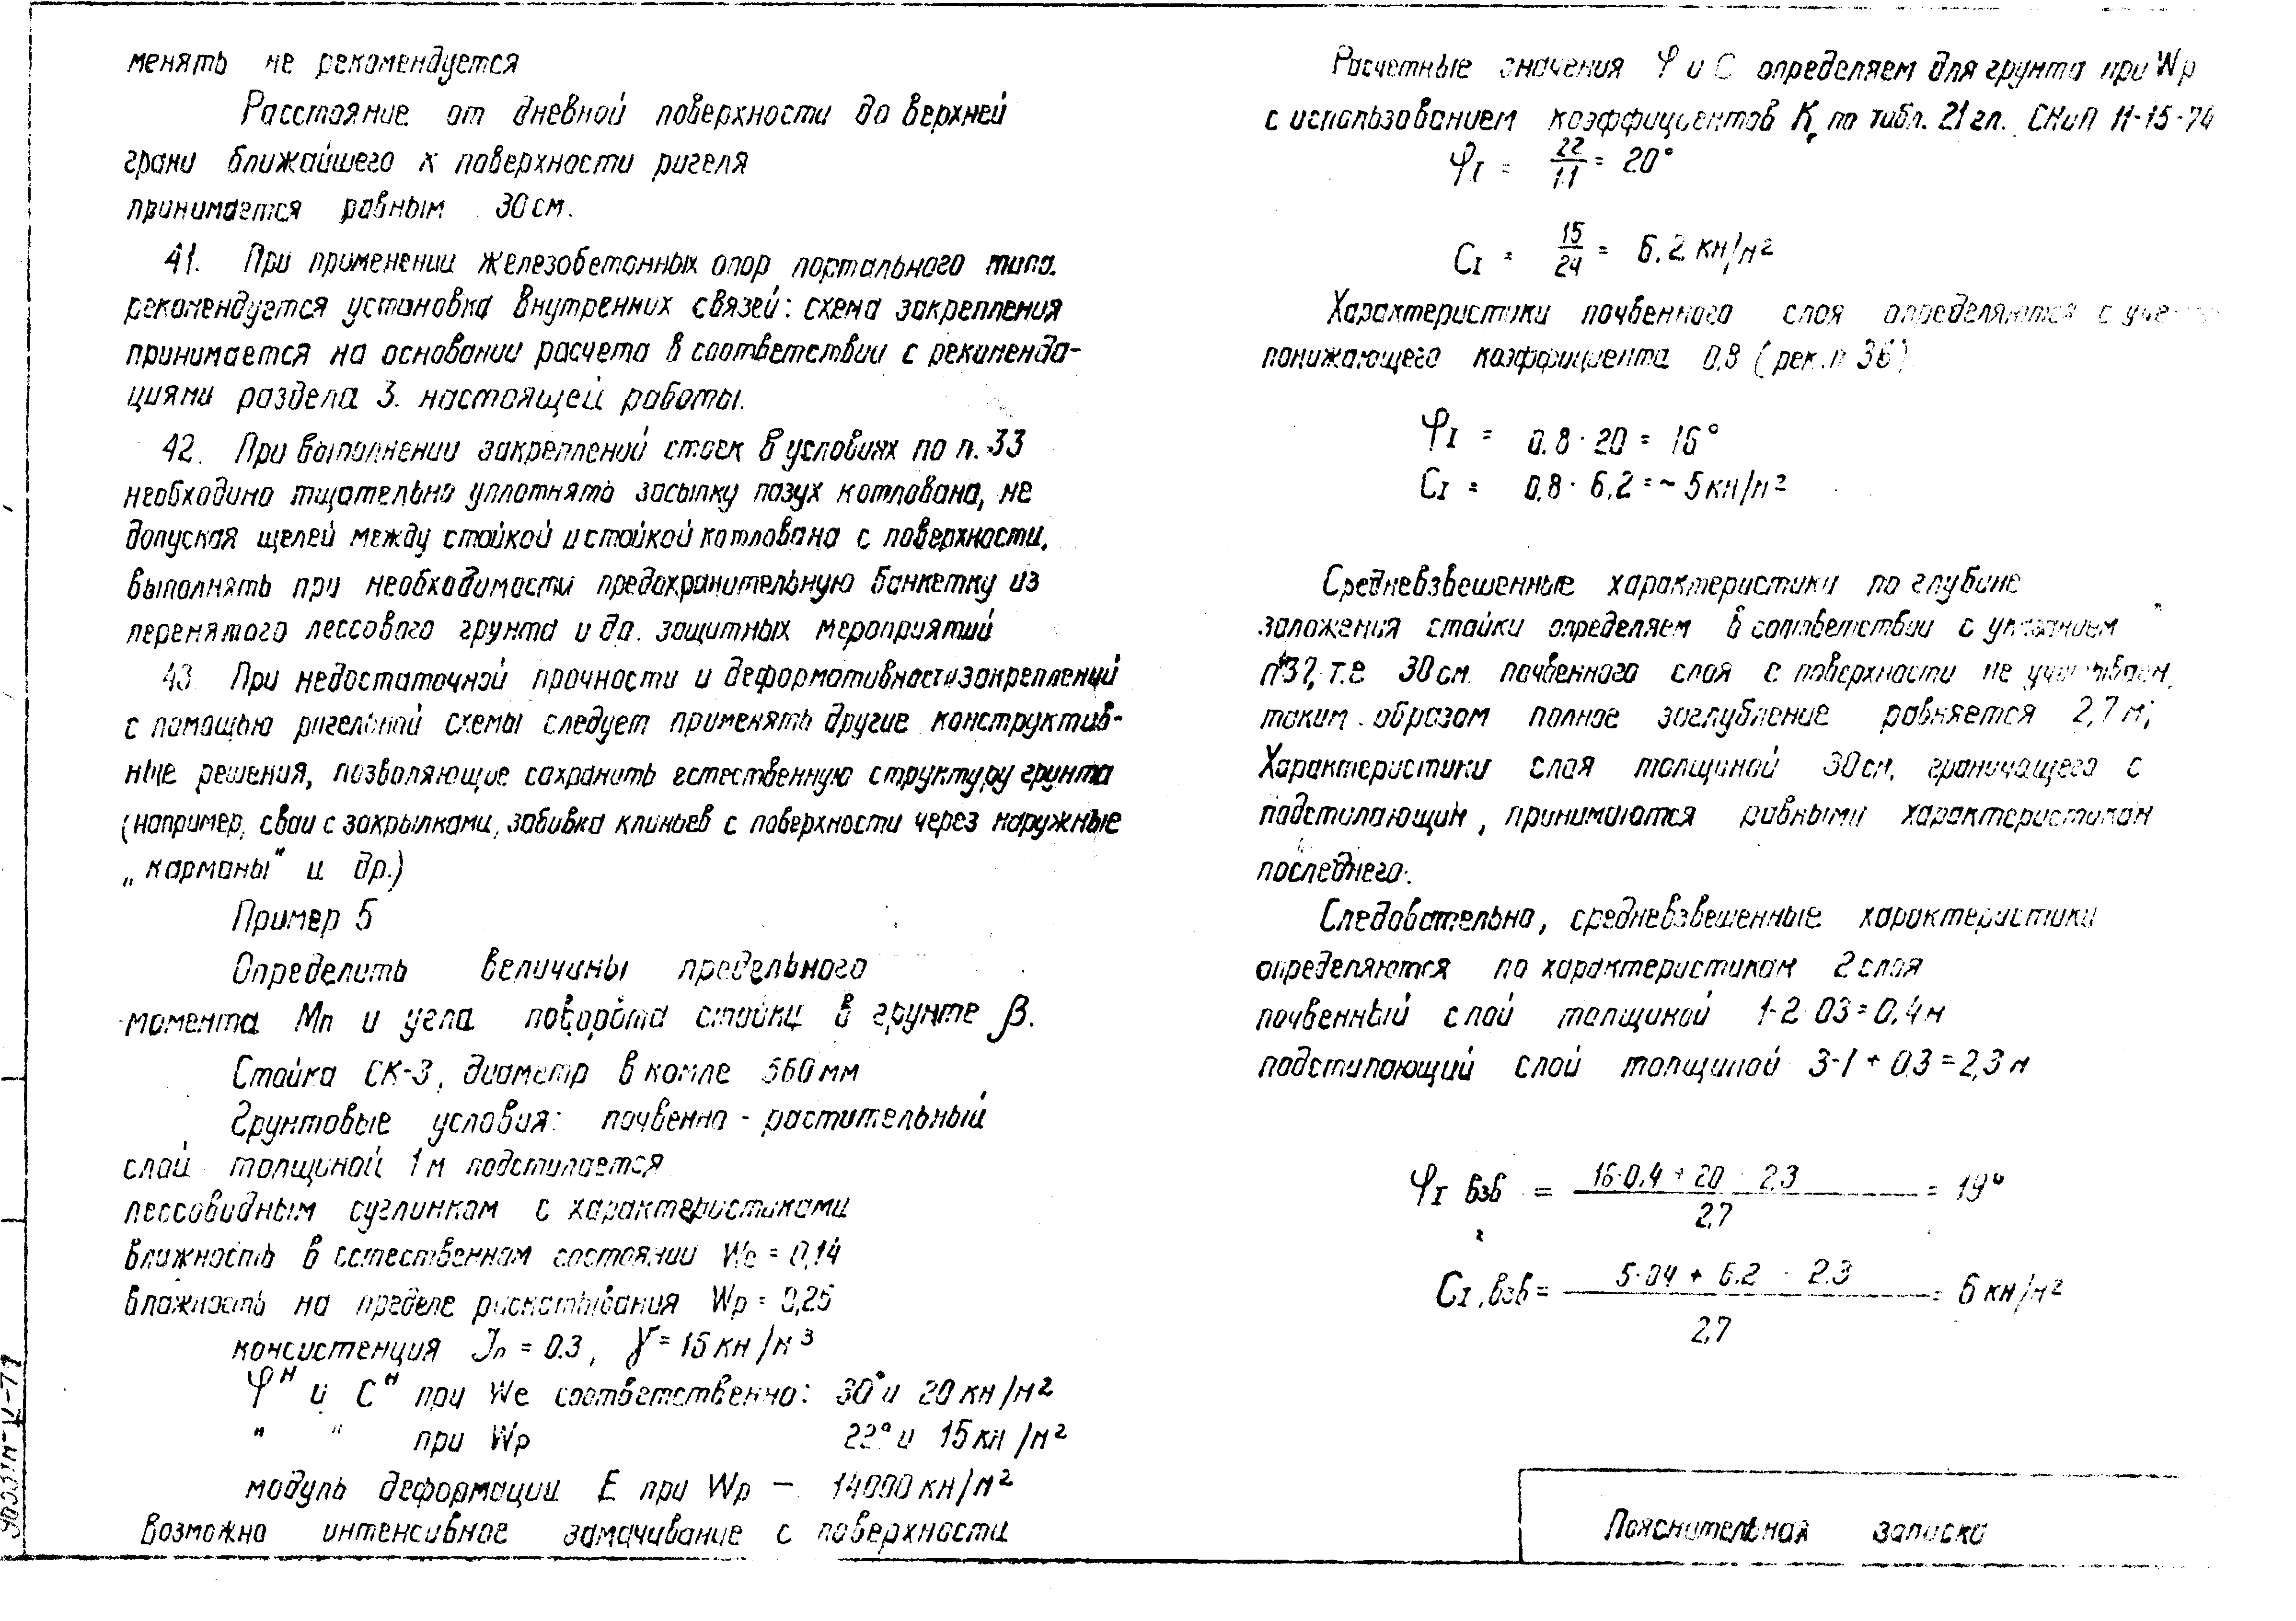 менять не рекомендуется
Расстояние от дневной поверхности до верхней
грани ближайшего к поверхности ригеля
принимается равным 30 см.
41. При применении железобетонных опор портального типа.
рекомендуется установка внутренних связей: схема закрепления
принимается на основании расчета в соответствии с рекоменда-
циями раздела 3. настоящей работы.
42. При выполнении закреплений стоек в условиях по п. 33
необходимо тщательно уплотнять засыпку пазух котлована, не
допуская щелей между стойкой и стойкой котлована с поверхности,
выполнять при необходимости предохранительную банкетку из
перемятого лессового грунта и др. защитных мероприятий
43 При недостаточной прочности и деформативности закреплений
с помощью ригельной схемы следует применять другие конструктив-
ные решения, позволяющие сохранить естественную структуру грунта
(например, сваи с закрылками, забивка клиньев с поверхности через наружные
„карманы" и др.)
Пример 5
Определить величины предельного
момента Мп и угла поворота стойки в грунте β.
Стойка СК-3, диаметр в комле 560 мм
Грунтовые условия: почвенно - растительный
слой толщиной 1 м подстилается
лессовидным суглинком с характеристиками
влажность в естественном состоянии We = 0,14
влажность на пределе раскатывания Wp = 0,25
консистенция Jл = 0.3, γ = 15 кн/м³
φᴴ и Cᴴ при We соответственно: 30° и 20 кн/м²
" " при Wp 22° и 15 кн/м²
модуль деформации E при Wp – 14000 кн/м²
Возможно интенсивное замачивание с поверхности
Расчетные значения φ и C определяем для грунта при Wp
с использованием коэффициентов К по табл. 21 гл. СНиП 11-15-74
φI = 22/1.1 = 20°
CI = 15/24 = 6.2 кн/м²
Характеристики почвенного слоя определяются с
понижающего коэффициента 0,8 (рек. п 36)
φI = 0.8 · 20 = 16°
CI = 0,8 · 6,2 = ~ 5 кн/м²
Средневзвешенные характеристики по глубине
заложения стойки определяем в соответствии с указанием
п 37, т.е 30 см. почвенного слоя с поверхности не учитываем,
таким образом полное заглубление равняется 2,7 м;
Характеристики слоя толщиной 30 см, граничащего с
подстилающим, принимаются равными характеристикам
последнего.
Следовательно, средневзвешенные характеристики
определяются по характеристикам 2 слоя
почвенный слой толщиной 1-2·03 = 0,4 м
подстилающий слой толщиной 3-1 + 0.3 = 2,3 м
φI взв = 16·0,4 + 20 · 2,3 / 2,7 = 19°
CI,взв = 5·04 + 6.2 · 2.3 / 2,7 = 6 кн/м²
Пояснительная записка